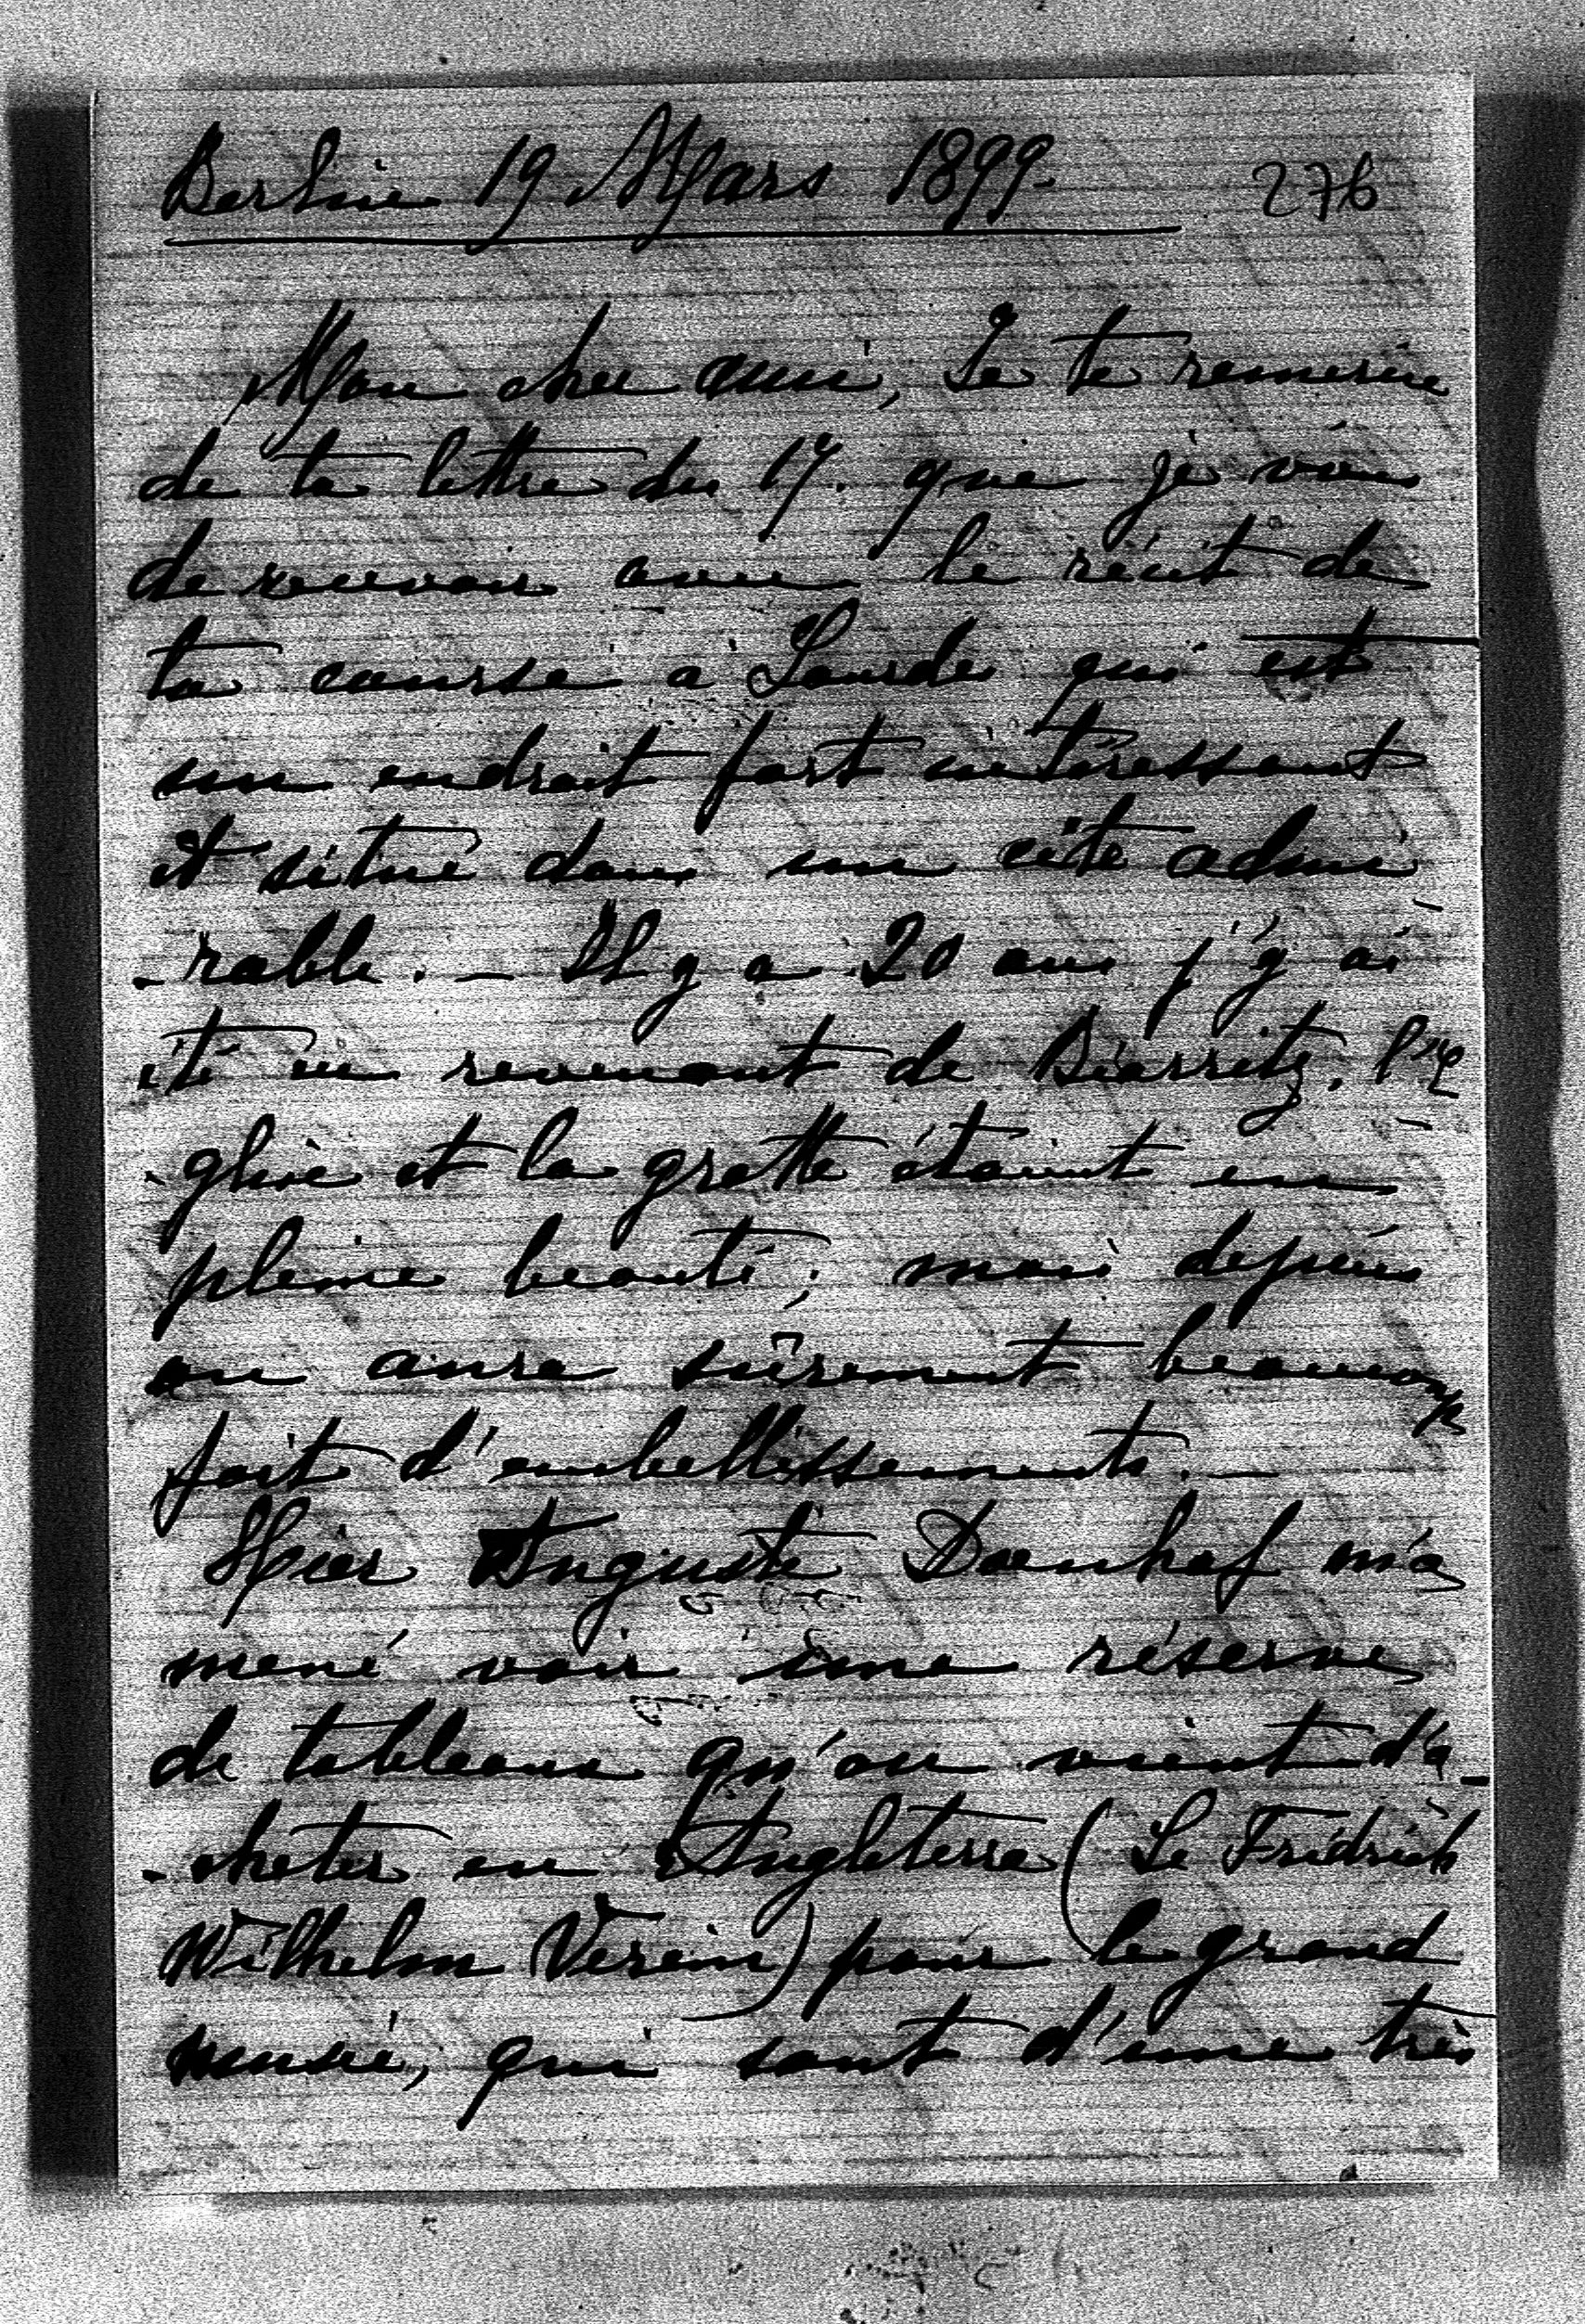 Berlin 19 Mars 1899. 276
Mon cher ami, Je te remercie
de ta lettre du 17. que je viens
de recevoir avec le récit de
ta course à Lourdes qui est
un endroit fort intéressant
et situé dans un site admi
-rable. – Il y a 20 ans j'y ai
été en revenant de Biarritz. l'é
-glise et la grotte étaient en
pleine beauté; mais depuis
on aura sûrement beaucoup
fait d'embellissements. –
Hier Auguste Doenhof m'a
mené voir une réserve
de tableaux qu'on vient d'a-
-cheter en Angleterre (Le Fridrich
Wilhelm Verein) pour le grand
musée, qui sont d'une très